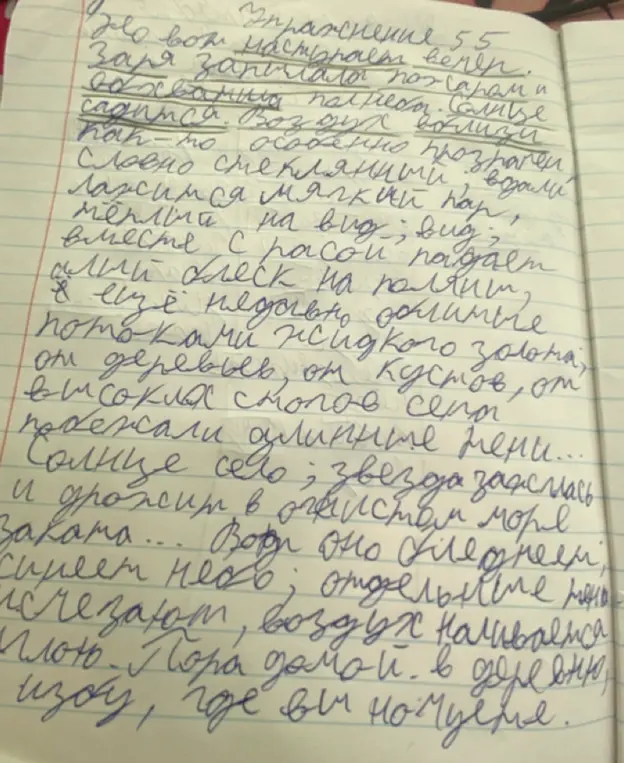 Упражнение 55
Но вот наступает вечер.
Заря запылала пожаром и
обхватила полнеба. Солнце
садится. Воздух вблизи
как-то особенно прозрачен,
словно стеклянный, вдали
ложится мягкий пар,
тёплый на вид; вид;
вместе с расой падает
алый блеск на поляны,
ещё недавно облитые
потоками жидкого золота;
от деревьев, от кустов, от
высоких стогов сена
побежали длинные тени...
Солнце село; звезда зажглась
и дрожит в огнистом море
заката... Вот оно бледнеет,
синеет небо; отдельные тени
исчезают, воздух наливается
мглою. Пора домой. в деревню,
избу, где вы ночуете.